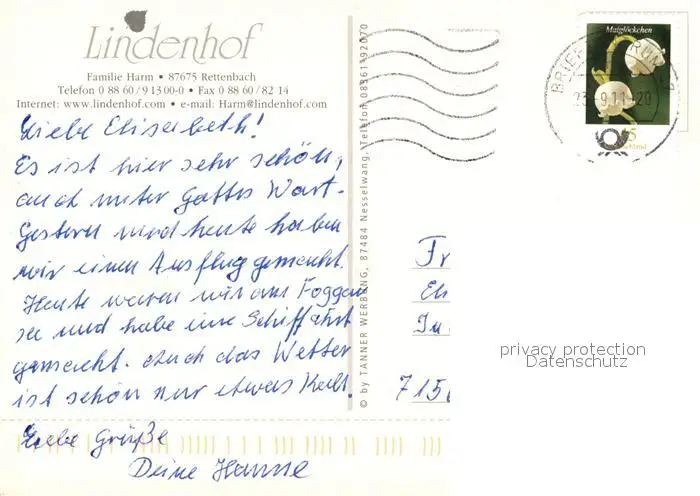 Lindenhof
Familie Harm • 87675 Rettenbach
Telefon 0 88 60 / 9 13 00-0 • Fax 0 88 60 / 82 14
Internet: www.lindenhof.com • e-mail: Harm@lindenhof.com
Liebe Eliserbeth!
Es ist hier sehr schön,
auch unter Gottes Wort.
Gestern und heute haben
wir einen Ausflug gemacht.
Heute waren wir am Foggen
see und habe eine Schiffahrt
gemacht. Auch das Wetter
ist schön nur etwas Kalt.
Liebe Grüße
Deine Hanne
© by TANNER WERBUNG, 87484 Nesselwang, Telefon 08361/92070
Maiglöckchen
BRIEF
23.-9.11-20
Fr
El
In
715
privacy protection
Datenschutz